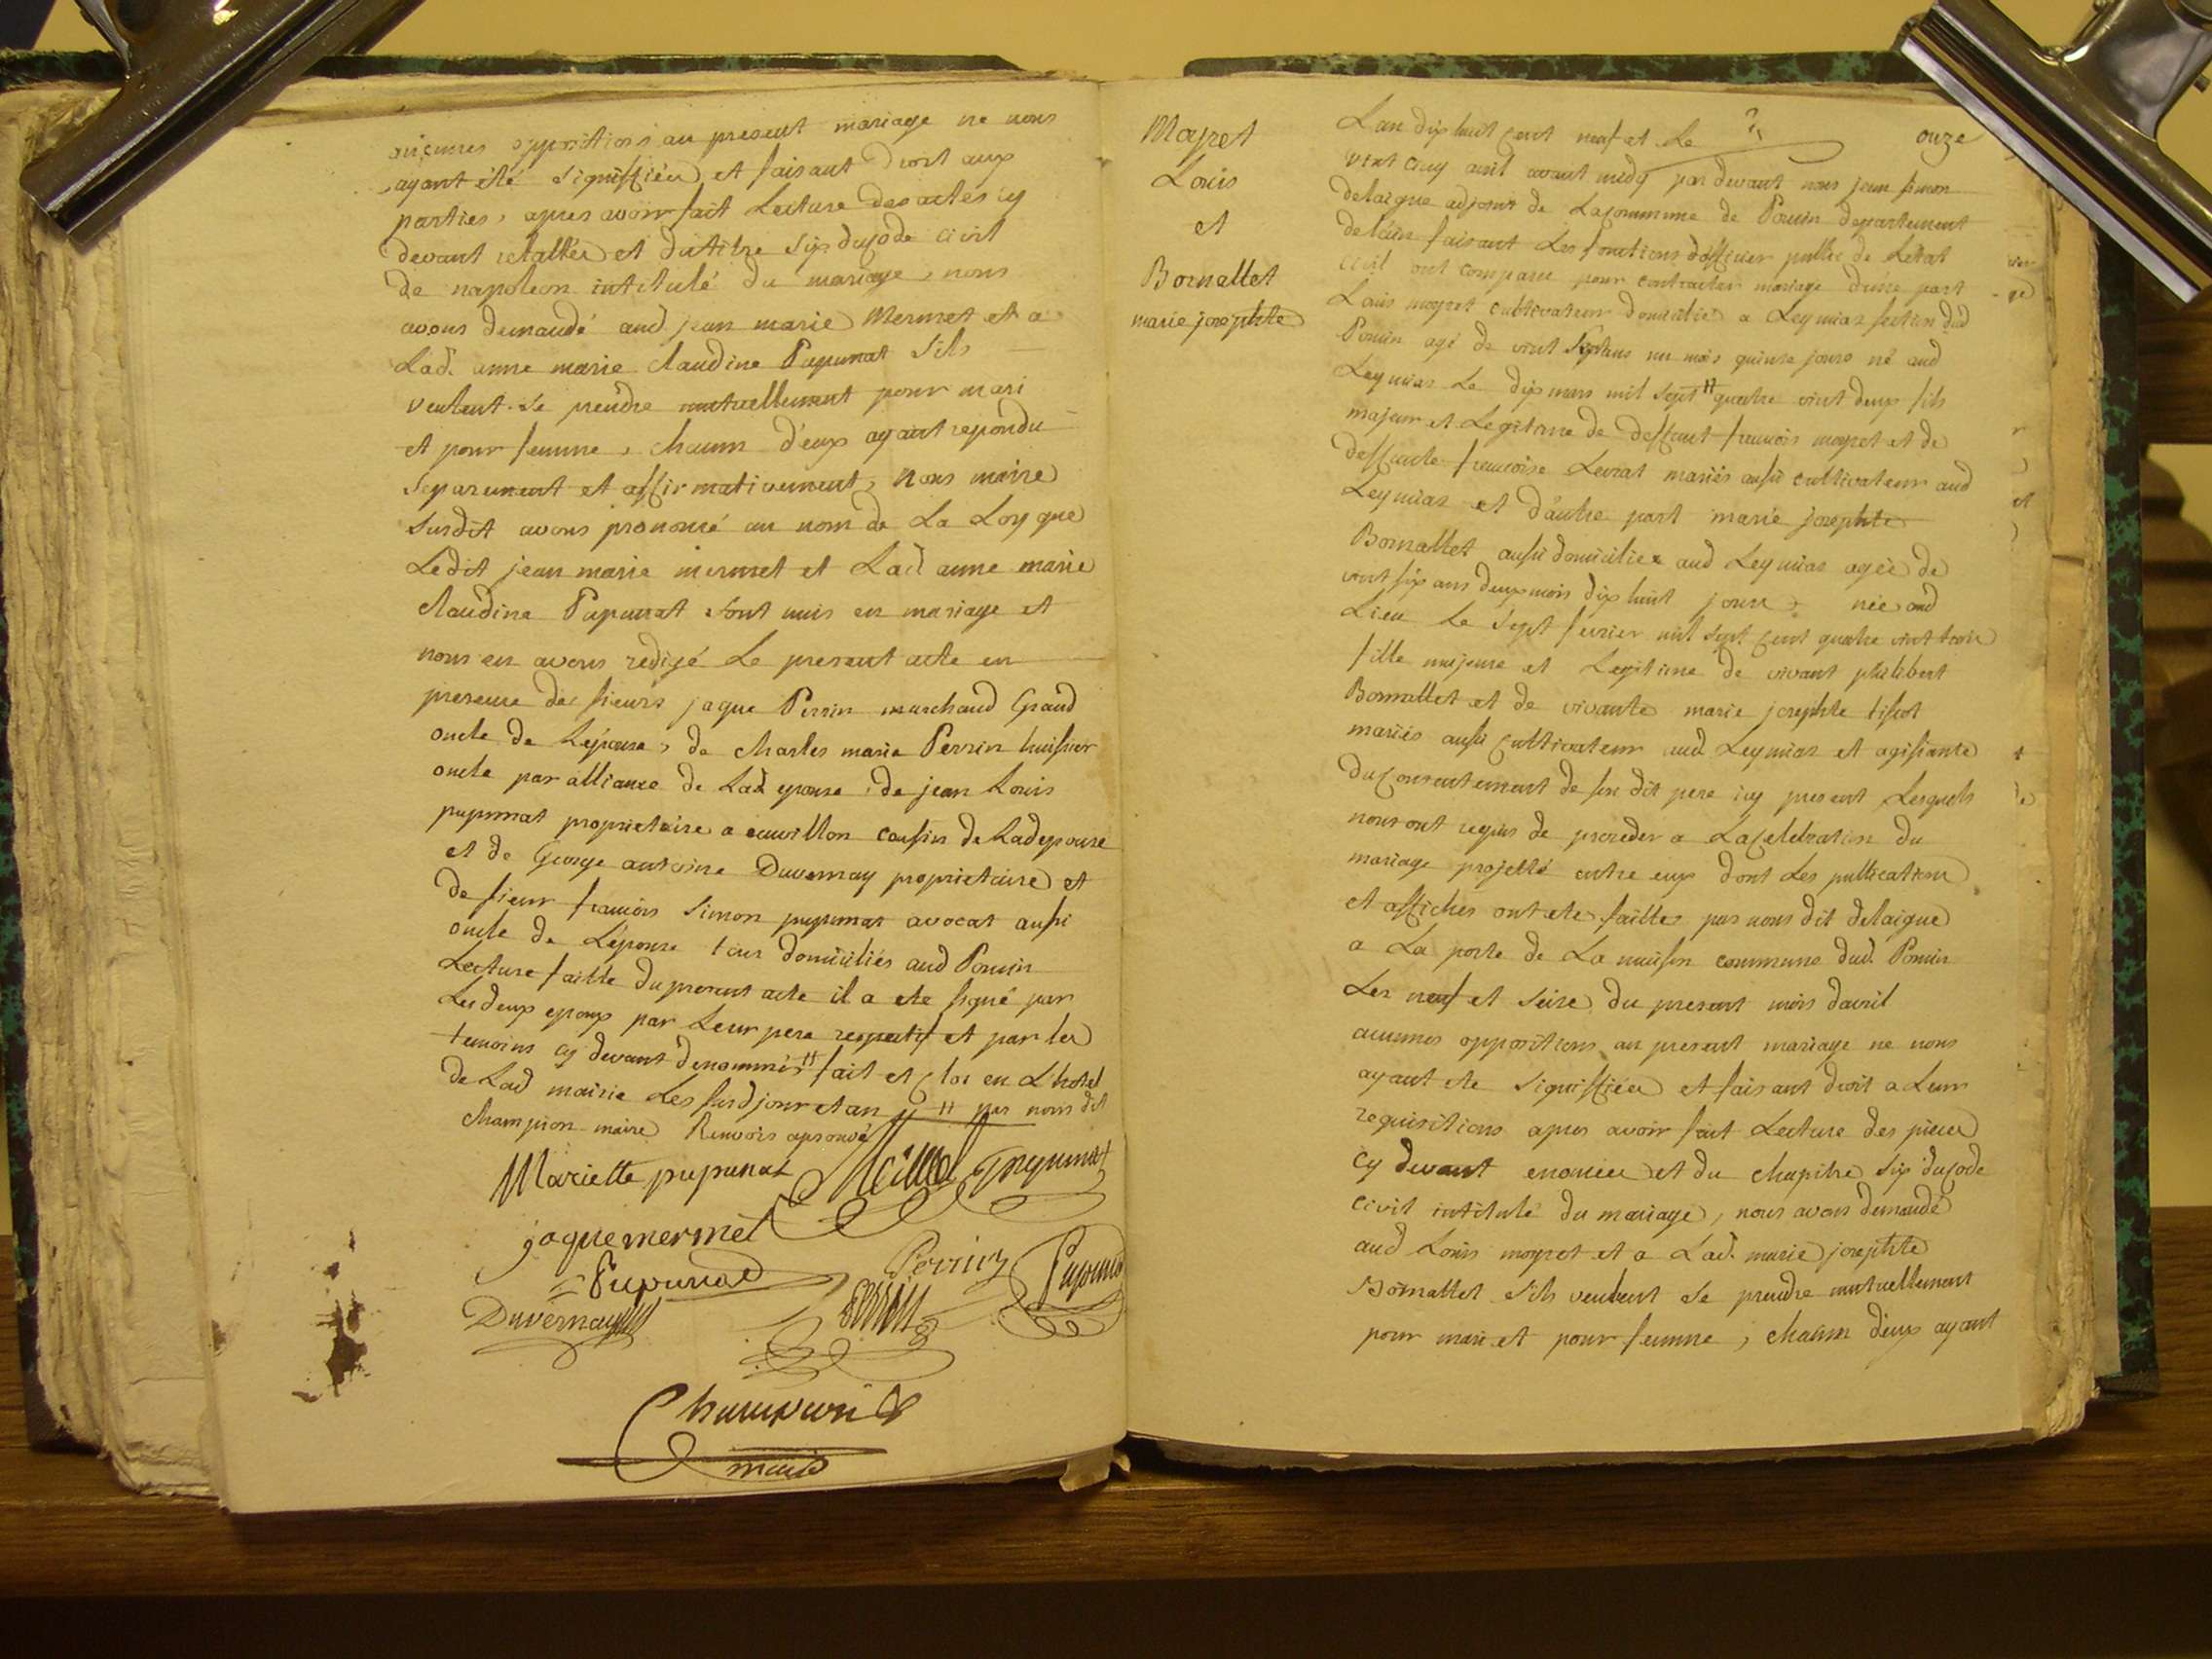 aucunes oppositions au present mariage ne nous
ayant été signiffiées et faisant droit aux
parties, apres avoir fait Lecture des actes cy
devant relattés et du titre six du code civil
de napoleon intitulé du mariage, nous
avons demandé aud jean marie Mermet et a
Lad. anne marie Claudine Papunat s'ils
veulent se prendre mutuellement pour mari
et pour femme, chacun d'eux ayant repondu
separement et affirmativement, nous maire
susdit avons prononcé au nom de La Loy que
Ledit jean marie mermet et Lad anne marie
Claudine Papunat sont unis en mariage et
nous en avons redigé Le present acte en
presence des sieurs jaque Perrin marchand Grand
oncle de Lépouse, de charles marie Perrin huissier
oncle par alliance de Lad epouse, de jean Louis
pupunat proprietaire a cousin de Lad epouse
et de George antoine Duvernay proprietaire et
de sieur francois Simon pupunat avocat aussi
oncle de Lépouse tous domiciliés aud Poncin
Lecture faitte du present acte il a ete signé par
Les deux epoux par Leur pere respectif et par les
temoins cy devant denommés # fait et clos en L'hotel
de Lad mairie Les susd jour et an # par nous dit
champion maire Renvois aprouvé
Mariette pupunat
jaque mermet
Pupunat Perrin
Duvernay
Champion
maire
Mayret
Louis
et
Bornallet
marie josephte
onze
Lan dix huit cent neuf et Le
vint cinq avril avant midy par devant nous jean simon
delaigue adjoint de La commune de Poncin departement
de Lain faisant Les fonctions d'officier public de Létat
civil ont comparu pour contracter mariage d'une part
Louis moyret cultivateur domicilié a Leymiaz section dud
Poncin agé de vint sept ans un mois quinze jours né aud
Leymiaz Le dix mars mil sept # quatre vint deux fils
majeur et Legitime de deffunt francois moyret et de
deffunte francoise Levrat mariés aussi cultivateur aud
Leymiaz et d'autre part marie josephte
Bornallet aussi domiciliée aud Leymiaz agée de
vint six ans deux mois dix huit jours, née aud
Lieu Le sept fevrier mil sept cent quatre vint trois
fille majeure et Legitime de vivant philibert
Bornallet et de vivante marie josephte tissot
mariés aussi cultivateur aud Leymiaz et agissante
du consentement de son dit pere icy present Lesquels
nous ont requis de proceder a La Celebration du
mariage projetté entre eux dont Les publications
et affiches ont ete faittes par nous dit delaigue
a La porte de La maison commune dud. Poncin
Les neuf et seize du present mois davril
aucunes oppositions au present mariage ne nous
ayant ete signiffiées et faisant droit a Leur
requisitions apres avoir fait Lecture des pieces
cy devant enoncées et du chapitre six du code
civil intitulé du mariage, nous avons demandé
aud Louis moyret et a Lad. marie josephte
Bornallet s'ils veulent se prendre mutuellement
pour mari et pour femme, chacun d'eux ayant